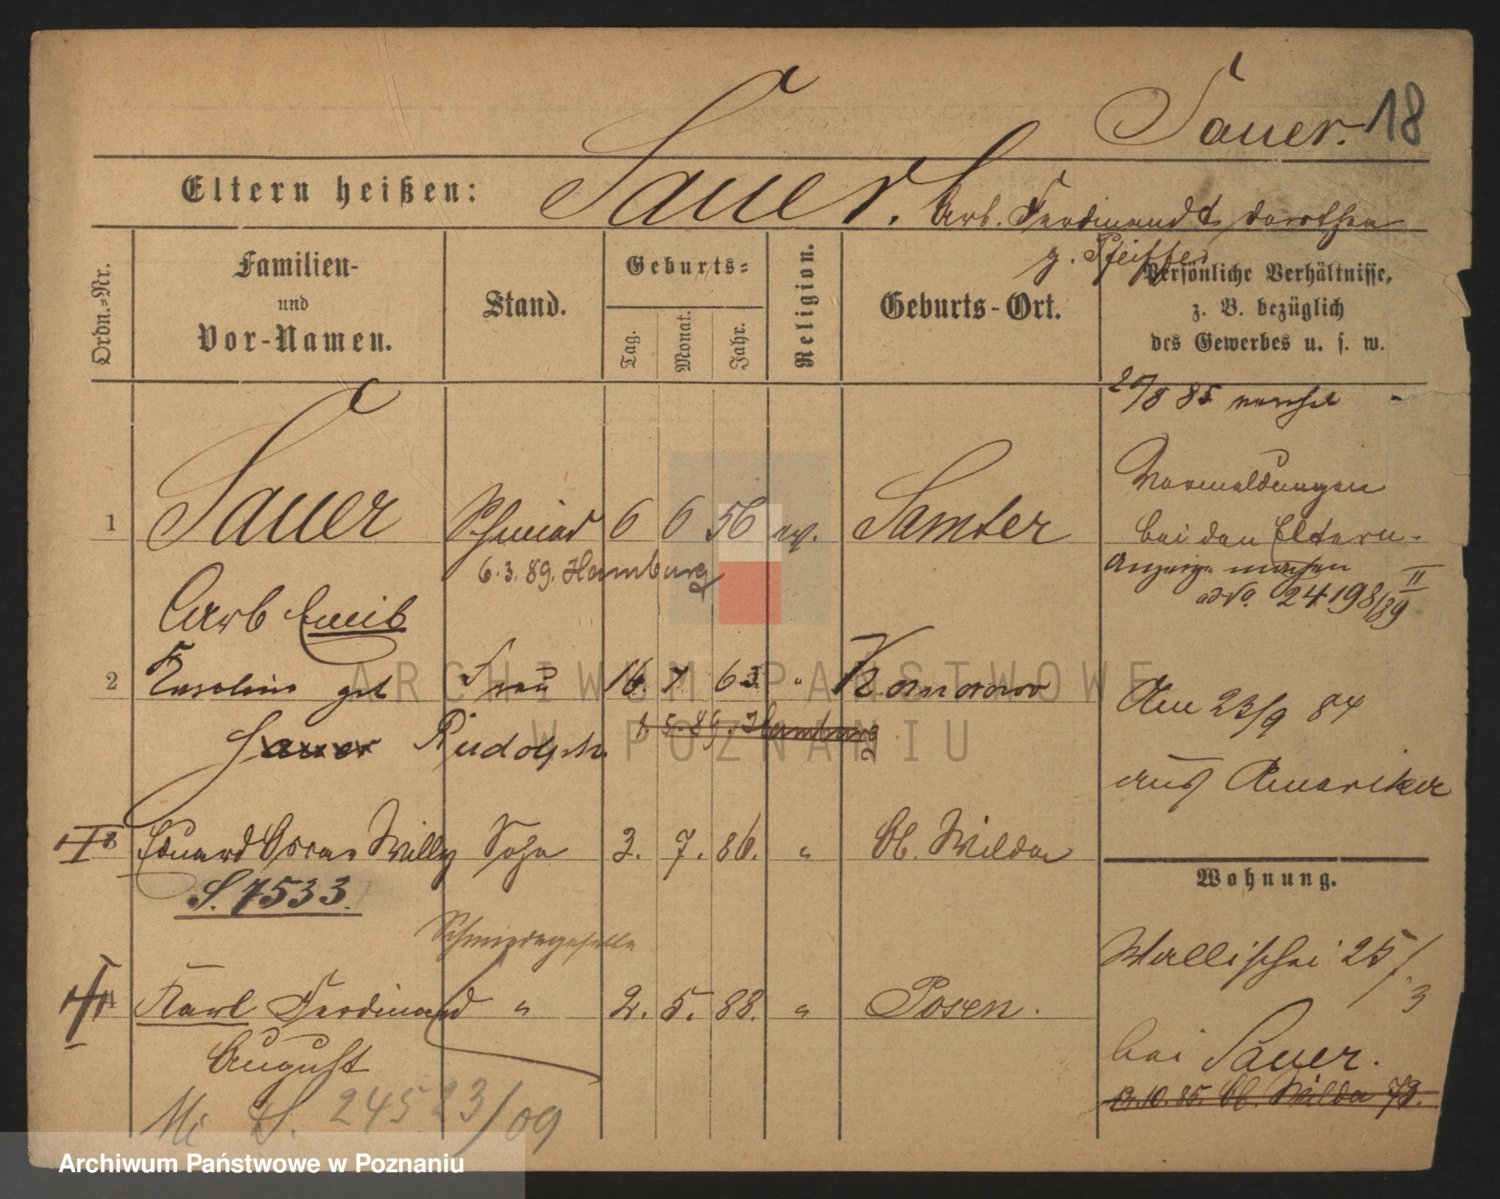 Sauer. 18
Eltern heißen: Sauer. Arb. Ferdinand u. Dorothea
g. Pfeiffer
Ordn.-Nr.
Familien-
und
Vor-Namen.
Stand.
Geburts-
Tag.
Monat.
Jahr.
Religion.
Geburts-Ort.
Persönliche Verhältnisse,
z. B. bezüglich
des Gewerbes u. s. w.
27/8 85
1 Sauer Schmied 6 6 56 ev. Samter
6.3.89. Hamburg
Carl Emil
Vormeldungen
bei den Eltern.
Anzeige machen
ad No. 24198/89 II
2 Karoline geb Frau 16. 7. 63. " Komorowo
Sauer Rudolph
5.89. Hamburg
Am 23/9 84
aus Amerika
3 Eduard Oscar Willy Sohn 3. 7. 86. " Ob. Wilda
S. 7533.
Wohnung.
Schmiedegeselle
Wallischei 25/3
4 Karl Ferdinand " 2. 5. 88. " Posen.
August
bei Sauer.
10.85. Ob. Wilda 73.
Mi S. 24523/09
ARCHIWUM PAŃSTWOWE
W POZNANIU
Archiwum Państwowe w Poznaniu